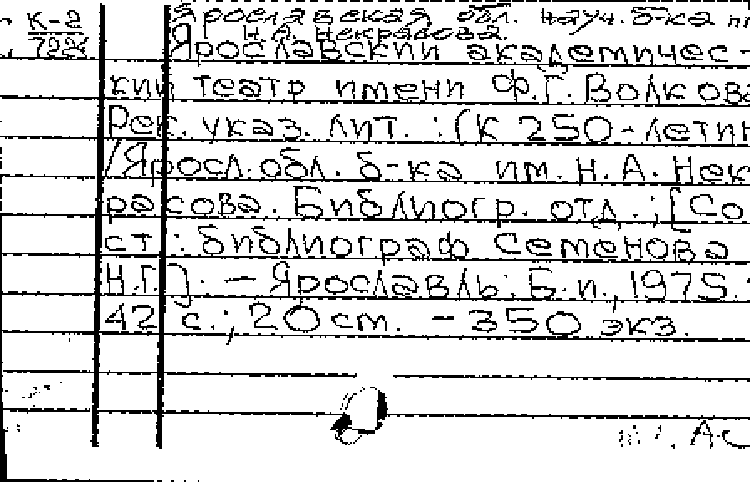 К-2
722
Ярославская обл. науч. б-ка
Н.А. Некрасова.
Ярославский академичес-
кий театр имени Ф.Г. Волкова
Рек. указ. лит. : (К 250-лети
/Яросл. обл. б-ка им. Н. А. Нек
расова. Библиогр. отд.; [Со
ст : библиограф Семенова
Н.Г.]. - Ярославль: Б.и., 1975.
42 с.; 20 см. - 350 экз.